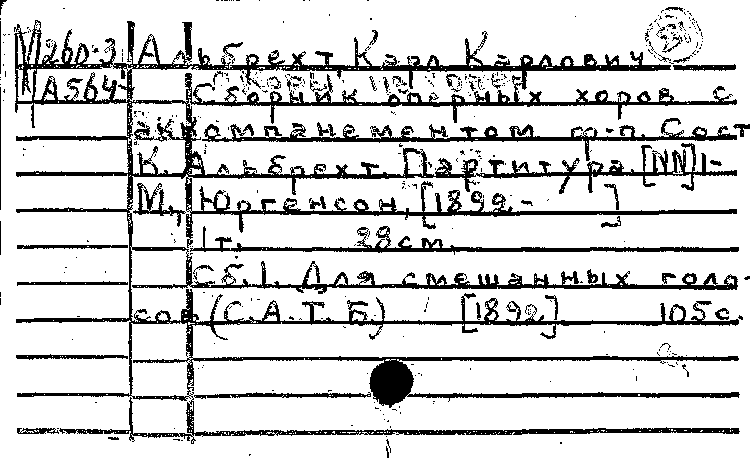 М260.3 Альбрехт, Карл Карлович
А564 Сборник оперных хоров с
аккомпанементом ф-п. Сост
К. Альбрехт. Партитура. [NN] 1-
М., Юргенсон, [1892- ]
1 т. 28 см.
Сб. 1. Для смешанных голо-
сов (С. А. Т. Б.) [1892] 105 с.